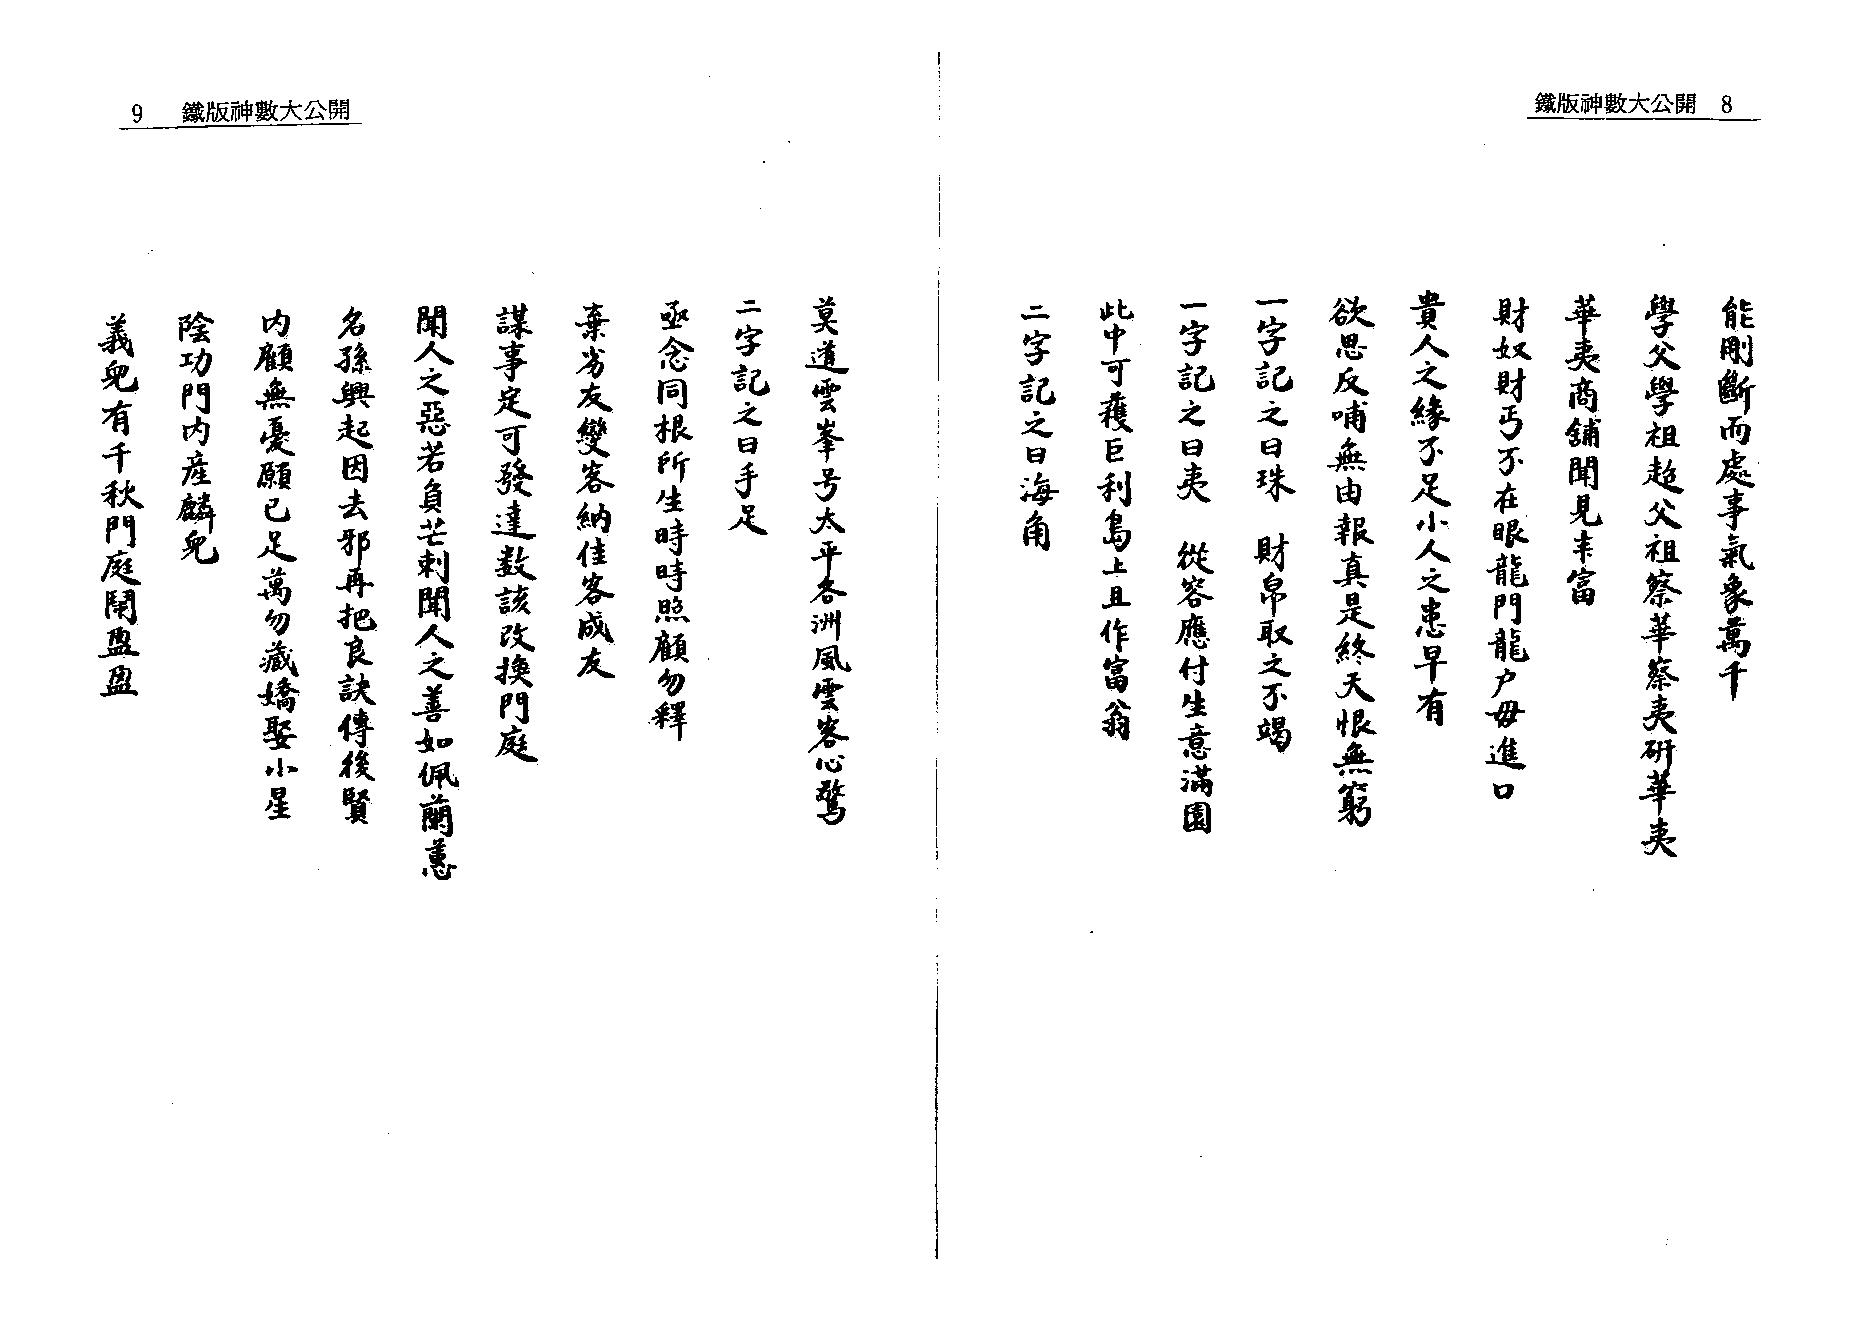 鐵版神數大公開 8
能剛斷而處事氣象萬千
學父學祖超父祖察華察夷研華夷
華夷商舖聞見丰富
財奴財丐不在眼龍門龍户毋進口
貴人之緣不足小人之患早有
欲思反哺無由報真是終天恨無窮
一字記之曰珠 財帛取之不竭
一字記之曰夷 從容應付生意滿園
此中可獲巨利島上且作富翁
二字記之曰海角
9 鐵版神數大公開
莫道雲峯号太平各洲風雲客心驚
二字記之曰手足
亟念同根所生時時照顧勿釋
棄劣友變客納佳客成友
謀事定可發達数該改換門庭
聞人之惡若負芒刺聞人之善如佩蘭蕙
名孫興起因去邪再把良訣傳後賢
内顧無憂願已足萬勿藏嬌娶小星
陰功門内産麟兒
義兒有千秋門庭鬧盈盈